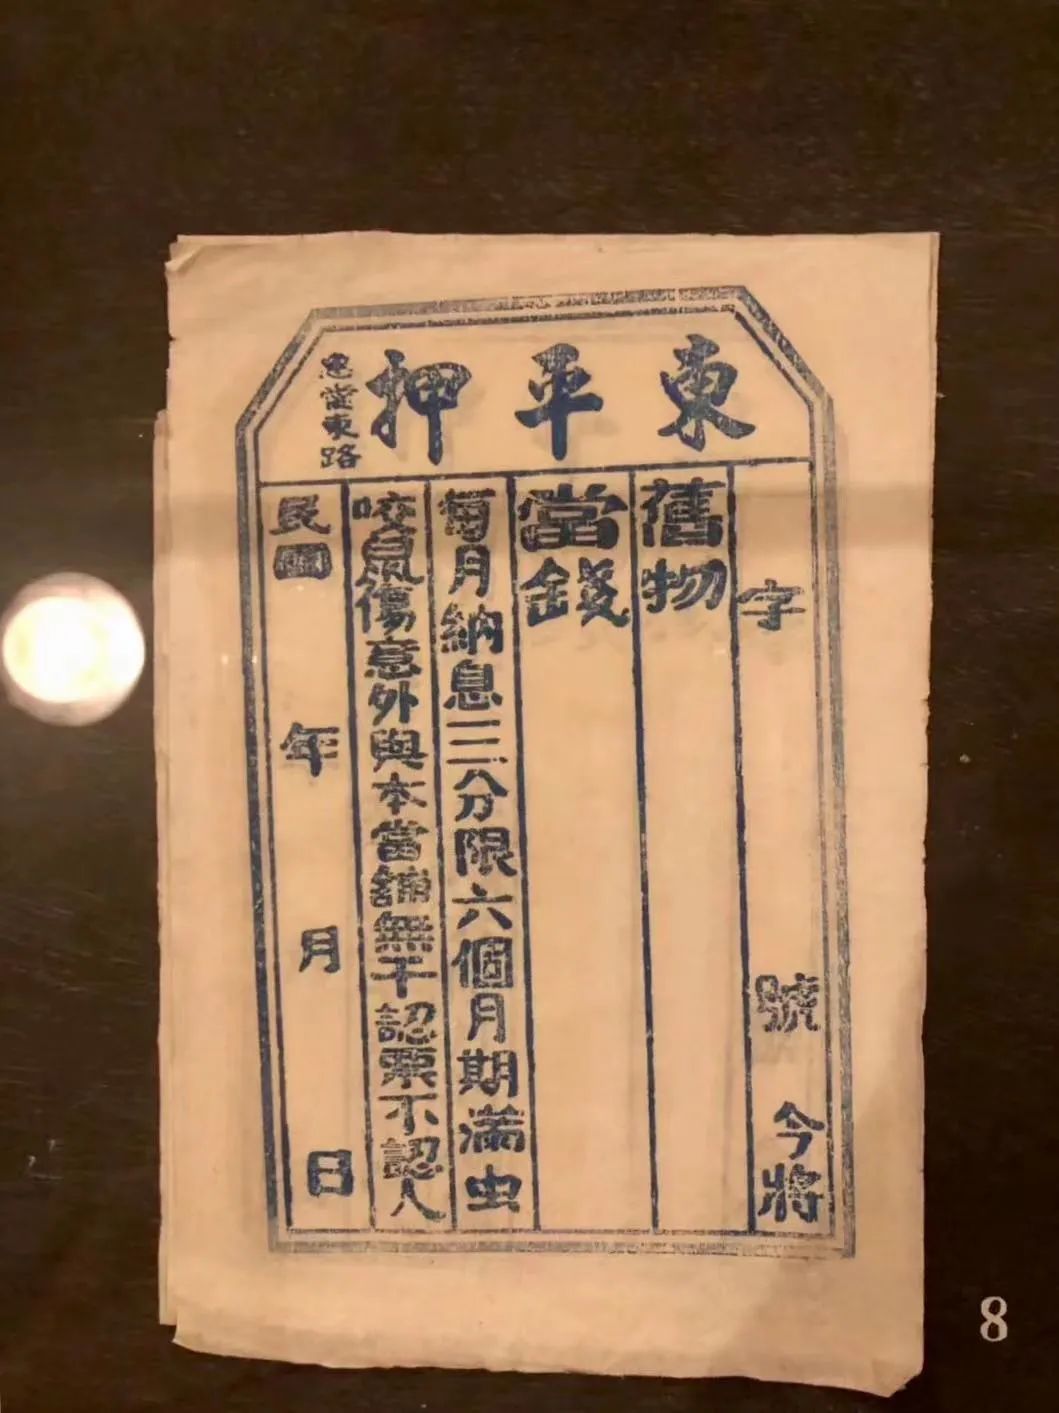 東平押
惠東路
字 號 今將
舊物
當錢
每月納息三分限六個月期滿虫
咬鼠傷意外與本當舖無干認票不認人
民國 年 月 日
8